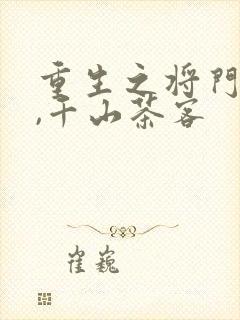 重生之将门
,千山茶客
崔巍